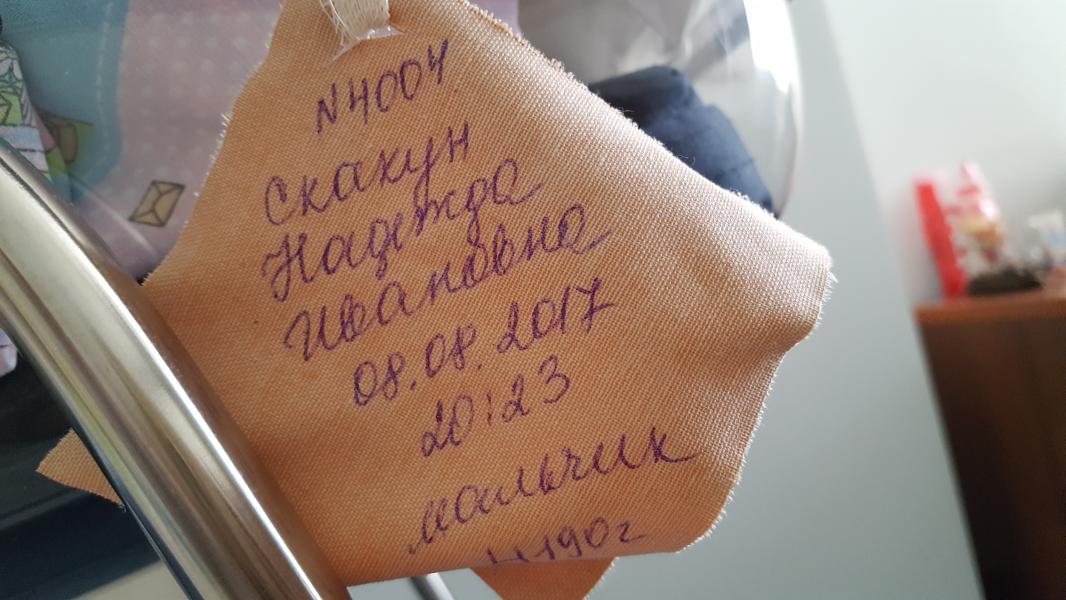 N4004
Скакун
Надежда
Ивановна
08.08.2017
20:23
мальчик
4190г